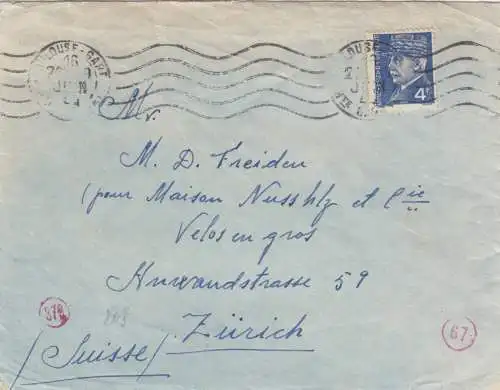 TOULOUSE-GARE
16
JUIN
4F
Mr
M. D. Freiden
(pour Maison Nussblz et Cie
Velos en gros
Anwandstrasse 59
Zürich
/Suisse/
67